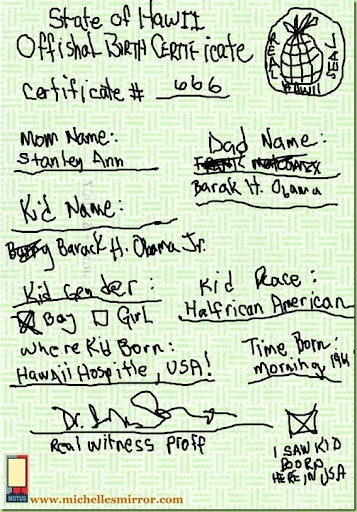 State of Hawii
REAL HAWII SEAL
Offishal BIRTH CERTIFICATE
Certificate # 666
Mom Name:
Dad Name:
Stanley Ann
Barak H. Obama
Kid Name:
Barack H. Obama Jr.
Kid Gender:
Kid Race:
Halfrican American
Boy Girl
Where Kid Born:
Time Born:
Hawaii Hospitle, USA!
morning 1961
Dr.
Real witness proff
I SAW KID
BOORN
HERE IN USA
MOTUS
www.michellesmirror.com